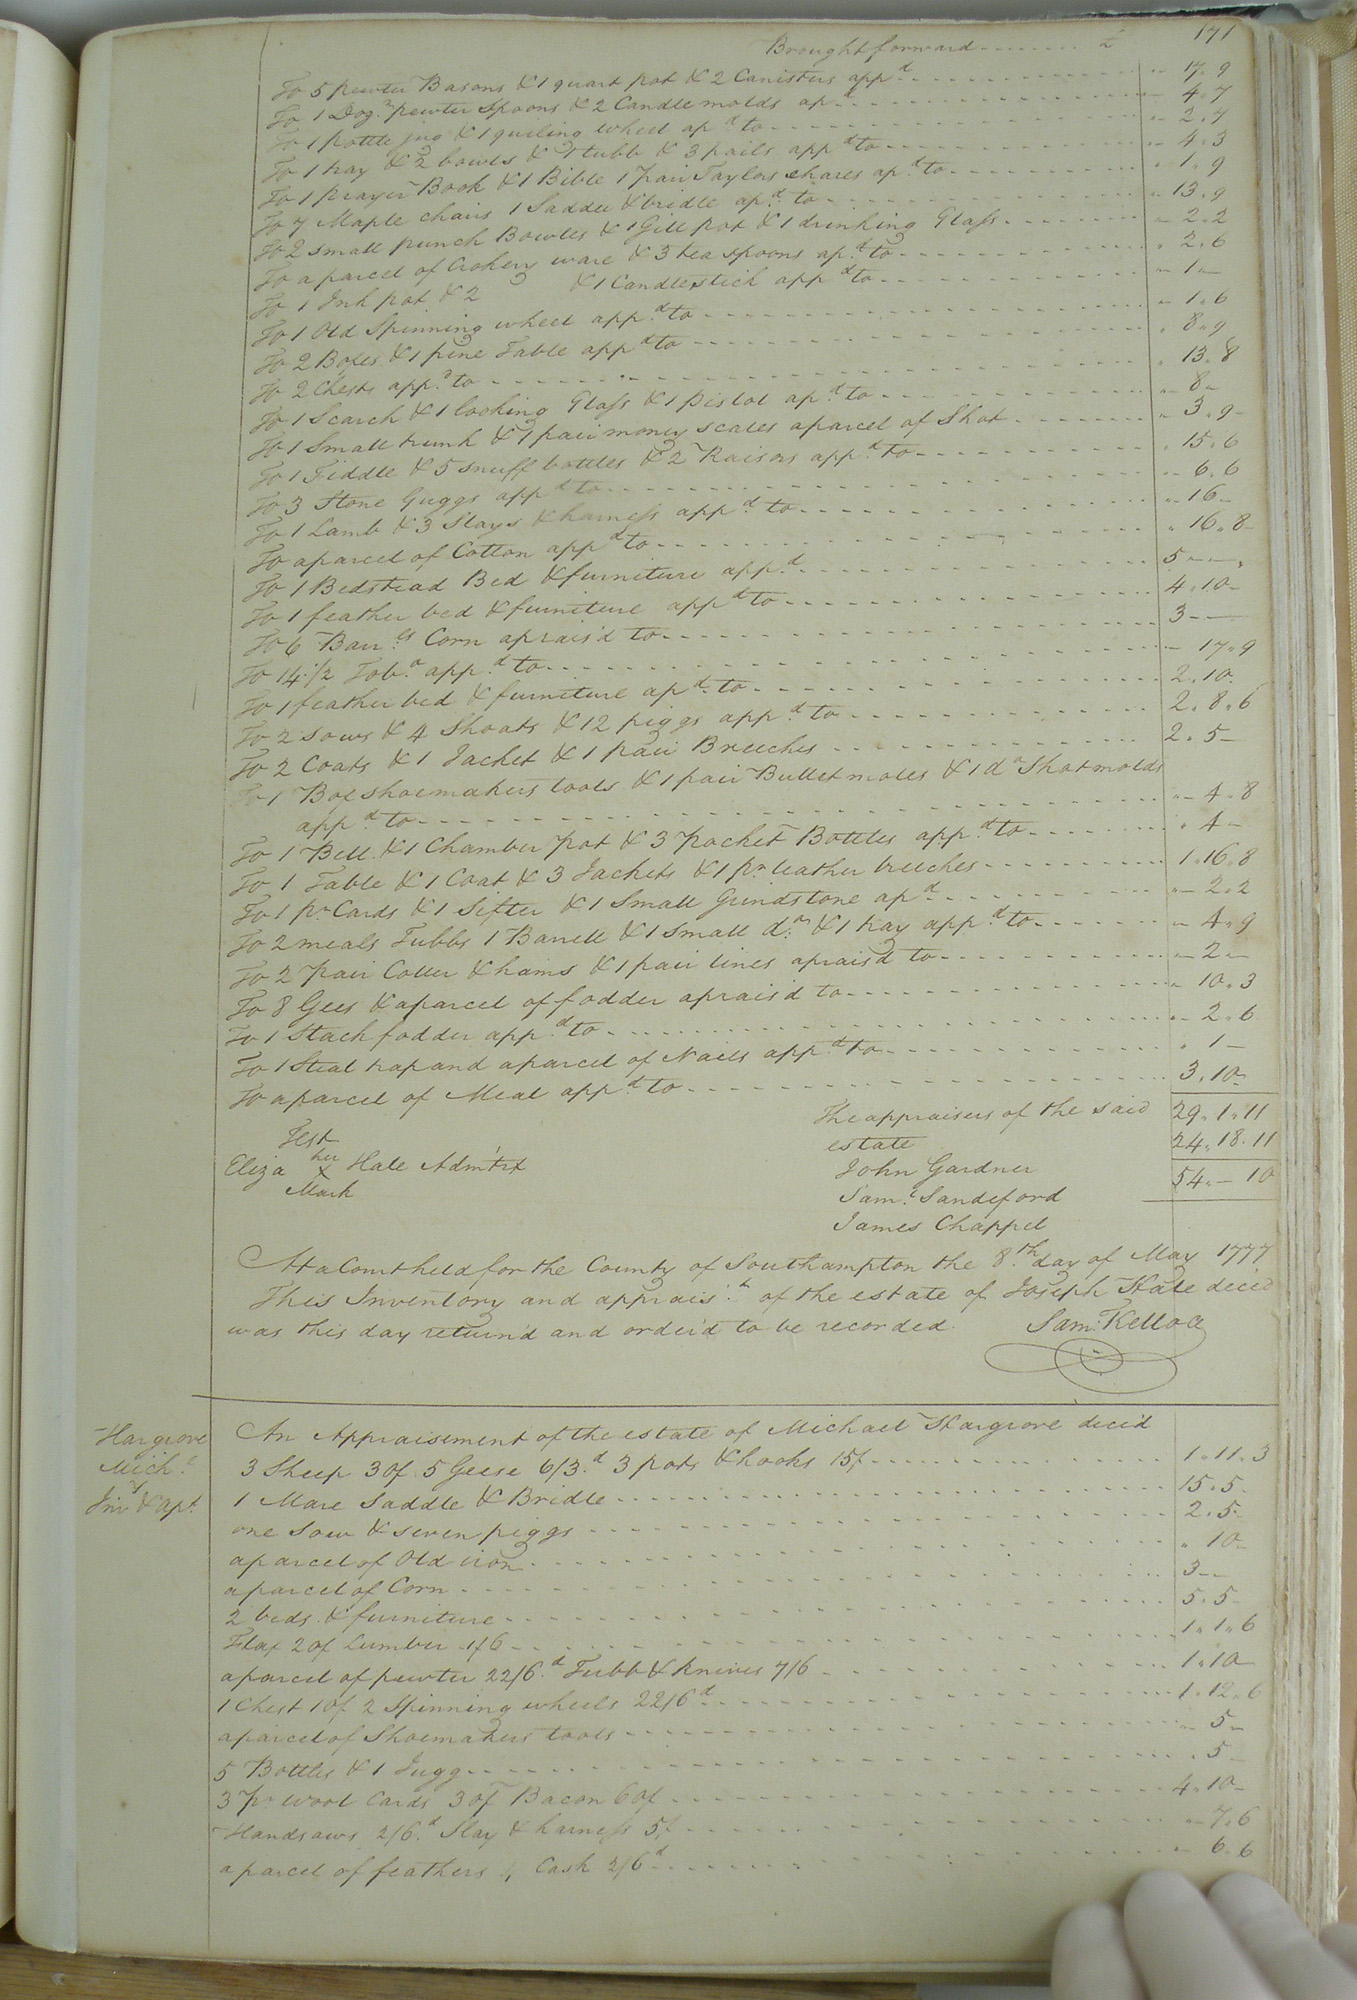 171
Brought forward £
To 5 pewter Basons & 1 quart pot & 2 Canisters appd " 17. 9
To 1 Dozn pewter spoons & 2 Candle molds apd " 4. 7
To 1 pottle jug & 1 quiling wheel apd to " 2. 7
To 1 tray & 2 bowls & 1 tubb & 3 pails appd to " 4. 3
To 1 prayer Book & 1 Bible 1 pair Taylors shares apd to " 1. 9
To 7 Maple chairs 1 Saddle & bridle apd to " 13. 9
To 2 small punch Bowles & 1 Gill pot & 1 drinking Glass " 2. 2
To a parcel of Crokery ware & 3 tea spoons apd to " 2. 6
To 1 Ink pot & 2 & 1 Candlestick appd to " 1 -
To 1 Old Spinning wheel appd to " 1. 6
To 2 Boxes & 1 pine Table appd to " 8. 9
To 2 Chests appd to " 13. 8
To 1 Search & 1 looking Glass & 1 pistol apd to " 8 -
To 1 Small trunk & 1 pair money scales a parcel of Shot " 3. 9
To 1 Fiddle & 5 snuff bottles & 2 Raisors appd to " 15. 6
To 3 Stone Guggs appd to " 6. 6
To 1 Lamb & 3 Slays & harness appd to " 16 -
To a parcel of Cotton appd to " 16. 8
To 1 Bedstead Bed & furniture appd 5 - -
To 1 feather bed & furniture appd to 4. 10 -
To 6 Barrls Corn apraisd to 3 - -
To 14 1/2 Toba appd to - 17. 9
To 1 feather bed & furniture apd to 2. 10.
To 2 sows & 4 Shoats & 12 piggs appd to 2. 8. 6
To 2 Coats & 1 Jacket & 1 pair Breeches 2. 5 -
To 1 Box shoemakers tools & 1 pair Bullet moles & 1 do Shot molds
appd to " 4. 8
To 1 Bell & 1 Chamber pot & 3 Pocket Bottles appd to " 4 -
To 1 Table & 1 Coat & 3 Jackets & 1 pr leather breeches 1. 16. 8
To 1 pr Cards & 1 Sifter & 1 Small Grindstone apd " 2. 2
To 2 meals Tubbs 1 Barrell & 1 small do & 1 tray appd to " 4. 9
To 2 pair Coller & hams & 1 pair lines apraisd to " 2 -
To 8 Gees & a parcel of fodder apraisd to " 10. 3
To 1 Stack fodder appd to " 2. 6
To 1 Steal trap and a parcel of Nails appd to " 1 -
To a parcel of Meal appd to 3. 10 -
The appraisers of the said 29. 1. 11
Test estate 24. 18. 11
Eliza her x Mark Hale Admtrx John Gardner 54. - 10
Saml Sandeford
James Chappel
At a Court held for the County of Southampton the 8th day of May 1777
This Inventory and appraist of the estate of Joseph Hale decd
was this day return'd and order'd to be recorded. Sam: Kello C
Hargrove
Michl
Inv & apt
An Appraisement of the estate of Michael Hargrove decd
3 Sheep 30/ 5 Geese 6/3d 3 pots & hooks 15/ 1. 11. 3
1 Mare Saddle & Bridle 15. 5 -
one Sow & seven piggs 2. 5 -
a parcel of Old iron " 10 -
a parcel of Corn 3 - -
2 beds & furniture 5. 5 -
Flax 20/ Lumber 1/6 1. 1. 6
a parcel of pewter 22/6d Tubb & knives 7/6 1. 10 -
1 Chest 10/ 2 Spinning wheels 22/6d 1. 12. 6
a parcel of Shoemakers tools " 5 -
5 Bottles & 1 Jugg " 5 -
3 pr wool Cards 30/ Bacon 60/ 4. 10 -
Handsaws 2/6d Slay & harness 5/ " 7. 6
a parcel of feathers Cash 2/6d " 6. 6